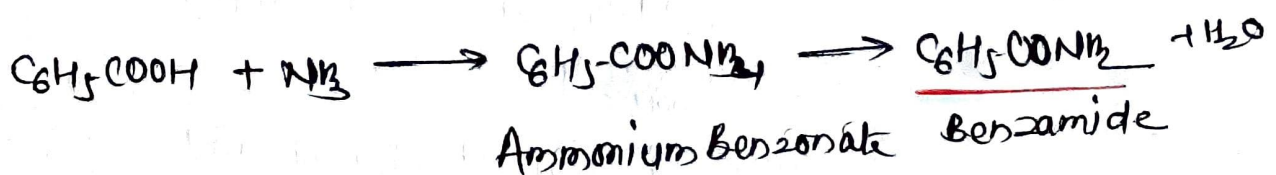 C6H5-COOH + NH3 ⟶ C6H5-COONH4 ⟶ C6H5-CONH2 + H2O
Ammonium Benzonate Benzamide